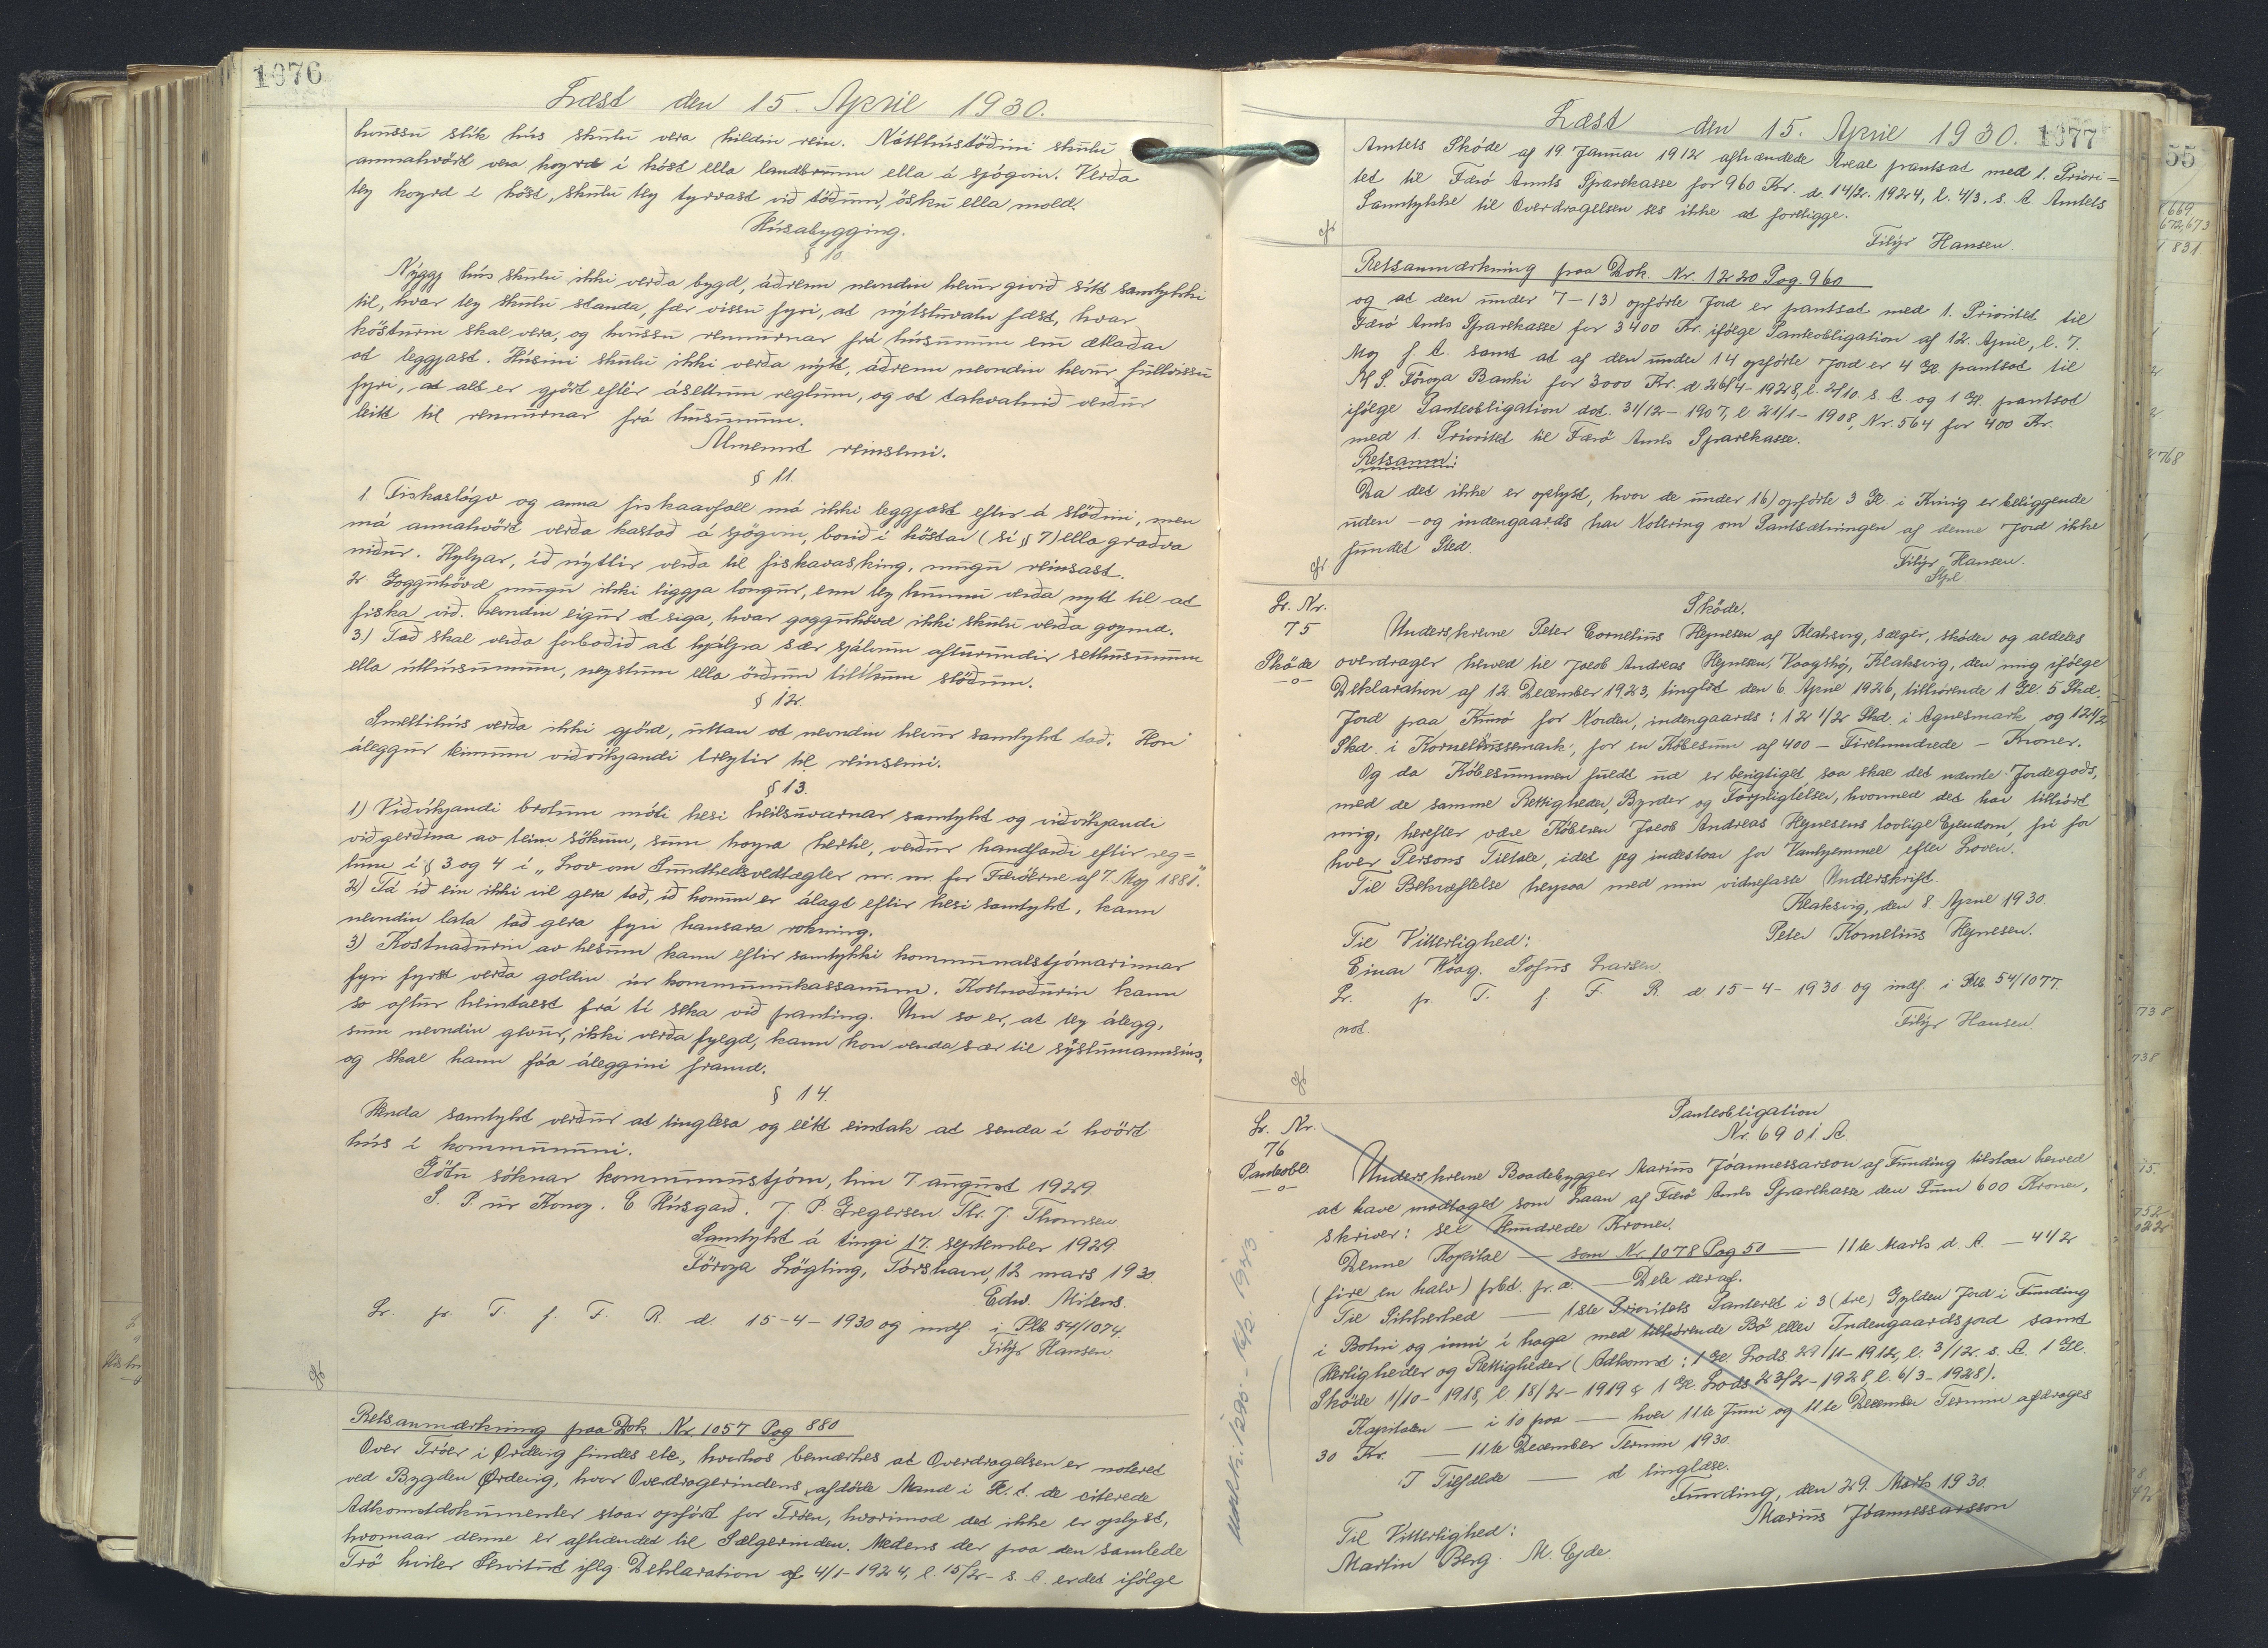 1076
Læst den 15. April 1930.
hvussu slík hús skulu vera hildin rein. Nátthústöðini skulu
annahvört vera koyrd í köst ella landbrunn ella á sjógvin. Verða
tey koyrd í köst, skulu tey tyrvast við töðum, ösku ella mold.
Húsabygging.
§ 10.
Nýggj hús skulu ikki verða bygd, áðrenn nevndin hevur givið sítt samtykki
til, hvar tey skulu standa, fær vissu fyri, at nýtsluvatn fæst, hvar
kösturin skal vera, og hvussu rennurnar frá húsunum eru ætlaðar
at leggjast. Húsini skulu ikki verða nýtt, áðrenn nevndin hevur fullvissu
fyri, at alt er gjört eftir ásettum reglum, og at takvatnið verður
leitt til rennurnar frá húsunum.
Alment reinsemi.
§ 11.
1. Fiskaslógv og anna fiskaavfall má ikki leggjast eftir á støðini, men
má annahvört verða kastað á sjógvin, borið í köstar (sí § 7) ella građva
niður. Hyljar, ið nýttir verða til fiskavasking, mugu reinsast.
2. Gogguhövd mugu ikki liggja longur, enn tey kunnu verða nytt til at
fiska við. Nevndin eigur at siga, hvar gogguhövd ikki skulu verða goymd.
3.) Tað skal verða forboðið at hjálpa sær sjálvum afturundir sethúsunum
ella úthúsunum, neystum ella öðrum tílíkum stöðum.
§ 12.
Smeltihús verða ikki gjörd, uttan at nevndin hevur samtykt tað. Hon
áleggur kinnum viðvíkjandi treytir til reinsemi.
§ 13.
1) Viðvíkjandi brotum móti hesi heilsuvarnar samtykt og viðvíkjandi
viðgerðina av teim sökum, sum hoyra hertil, verður handfarið eftir reg=
lum í § 3 og 4 í „Lov om Sundhedsvedtægter m. m. for Færöerne af 7. Maj 1881".
2) Tá ið ein ikki vil gera tað, ið honum er álagt eftir hesi samtykt, kann
nevndin lata tað gera fyri hansara rokning.
3) Kostnađurin av hesum kann eftir samtykki kommunalstjórnarinnar
fyri fyrst verða goldin úr kommunukassanum. Kostnađurin kann
so aftur heintast frá tí seka við panting. Um so er, at tey álegg,
sum nevndin gevur, ikki verða fylgd, kann hon venda sær til sýslumannsins,
og skal hann fáa áleggini framd.
§ 14.
Henda samtykt verður at tinglesa og eitt eintak at senda í hvört
hús í kommununi.
Götu sóknar kommunustjórn, hin 7. august 1929.
S. P. úr Konoy. E Húsgarð. J. P. Gregersen. Th. J. Thomsen
Samtykt á tingi 17. september 1929.
Föroya Lögting, Tórshavn, 12 mars 1930.
Edw. Mitens.
Lr. fr. T. f. F. R. d. 15-4-1930 og indf. i Plb 54/1074.
Filip Hansen
Retsanmærkning paa Dok. Nr. 1057 Pag 880
Over Tröer i Ørdevig findes ele., hvorhos bemærkes at Overdragelsen er noteret
ved Bygden Ørdevig, hvor Overdragerindens afdöde Mand i H. t. de citerede
Adkomstdokumenter staar opfört for Tröen, hvorimod det ikke er oplyst,
hvornaar denne er afhændet til Sælgerinden. Medens der paa den samlede
Trö hviler Servitut iflg. Deklaration af 4/1-1924, l. 15/2- s. A. er det ifölge
Læst den 15. April 1930. 1077
Amtets Sköde af 19 Januar 1912 afhændede Areal pantsat med 1. Priori=
tet til Færö Amts Sparekasse for 960 Kr. d. 14/2. 1924, l. 4/3. s. A. Amtets
Samtykke til Overdragelsen ses ikke at foreligge.
Filip Hansen
Retsanmærkning paa Dok. Nr. 1220 Pag. 960
og at den under 7-13) opförte Jord er pantsat med 1. Prioritet til
Færö Amts Sparekasse for 3400 Kr. ifölge Panteobligation af 12. April, l. 7.
Maj s. A. samt at af den under 14 opförte Jord er 4 Gl. pantsat til
A/S. Föroya Banki for 3000 Kr. d. 26/4-1928, l. 2/10. s. A. og 1 Gl. pantsat
ifölge Panteobligation dat. 31/12-1907, l. 21/1-1908, Nr. 564 for 400 Kr.
med 1. Prioritet til Færö Amts Sparekasse.
Retsanm:
Da det ikke er oplyst, hvor de under 16) opförte 3 Gl. i Kvivig er beliggende
uden- og indengaards har Notering om Pantsætningen af denne Jord ikke
fundet Sted.
Filip Hansen.
Stpl
Lr. Nr.
75
Sköde
Sköde.
Underskrevne Peter Cornelius Hejnesen af Klaksvig, sælger, sköder og aldeles
overdrager herved til Jacob Andreas Hejnesen, Vaagshöj, Klaksvig, den mig ifölge
Deklaration af 12. December 1923, tinglæst den 6. April 1926, tilhörende 1 Gl. 5 Skd.
Jord paa Kunö for Norden, indengaards: 12 1/2 Skd. i Agnesmark og 12 1/2
Skd. i Korneliussemark, for en Köbesum af 400 - Firehundrede - Kroner.
Og da Köbesummen fuldt ud er berigtiget saa skal det nævnte Jordegods,
med de samme Rettigheder, Byrder og Forpligtelser, hvormed det har tilhört
mig, herefter være Köberen Jacob Andreas Hejnesens lovlige Ejendom, fri for
hver Persons Tiltale, idet jeg indestaar for Vanhjemmel efter Loven.
Til Bekræftelse herpaa med min vidnefaste Underskrift.
Klaksvig, den 8. April 1930.
Peter Kornelius Hejnesen.
Til Vitterlighed:
Einar Waag. Sofus Larsen
Lr. fr. T. f. F. R. d. 15-4-1930 og indf. i Plb 54/1077.
not.
Filip Hansen.
Lr. Nr.
76
Panteobl.
Panteobligation
Nr. 6901. A.
Underskrevne Baadebygger Marius Jóannessarson af Funding tilstaar herved
at have modtaget som Laan af Færö Amts Sparekasse den Sum 600 Kroner,
skriver: seks Hundrede Kroner.
Denne Kapital — som Nr. 1078 Pag 50 — 11te Marts d. A. — 4 1/2
(fire en halv) pbt. pr. a. — Dele deraf.
Til Sikkerhed — 1ste Prioritets Panteret i 3 (tre) Gylden Jord i Funding
i Botni og inni í haga med tilhörende Bö eller Indengaardsjord samt
Herligheder og Rettigheder (Adkomst: 1 Gl. Lods. 29/11-1912, l. 3/12. s. A. 1 Gl.
Sköde 1/10-1918, l. 18/2-1919 & 1 Gl. Lods. 23/2-1928, l. 6/3-1928).
Kapitalen — i 10 paa — hver 11te Juni og 11te December Termin afdrages
30 Kr. — 11te December Termin 1930.
I Tilfælde — at tinglæse.
Funding, den 29. Marts 1930.
Marius Jóannessarsson
Til Vitterlighed:
Martin Berg. M. Ejde.
55
669
672,673
1 831
768
738
738
15.
752